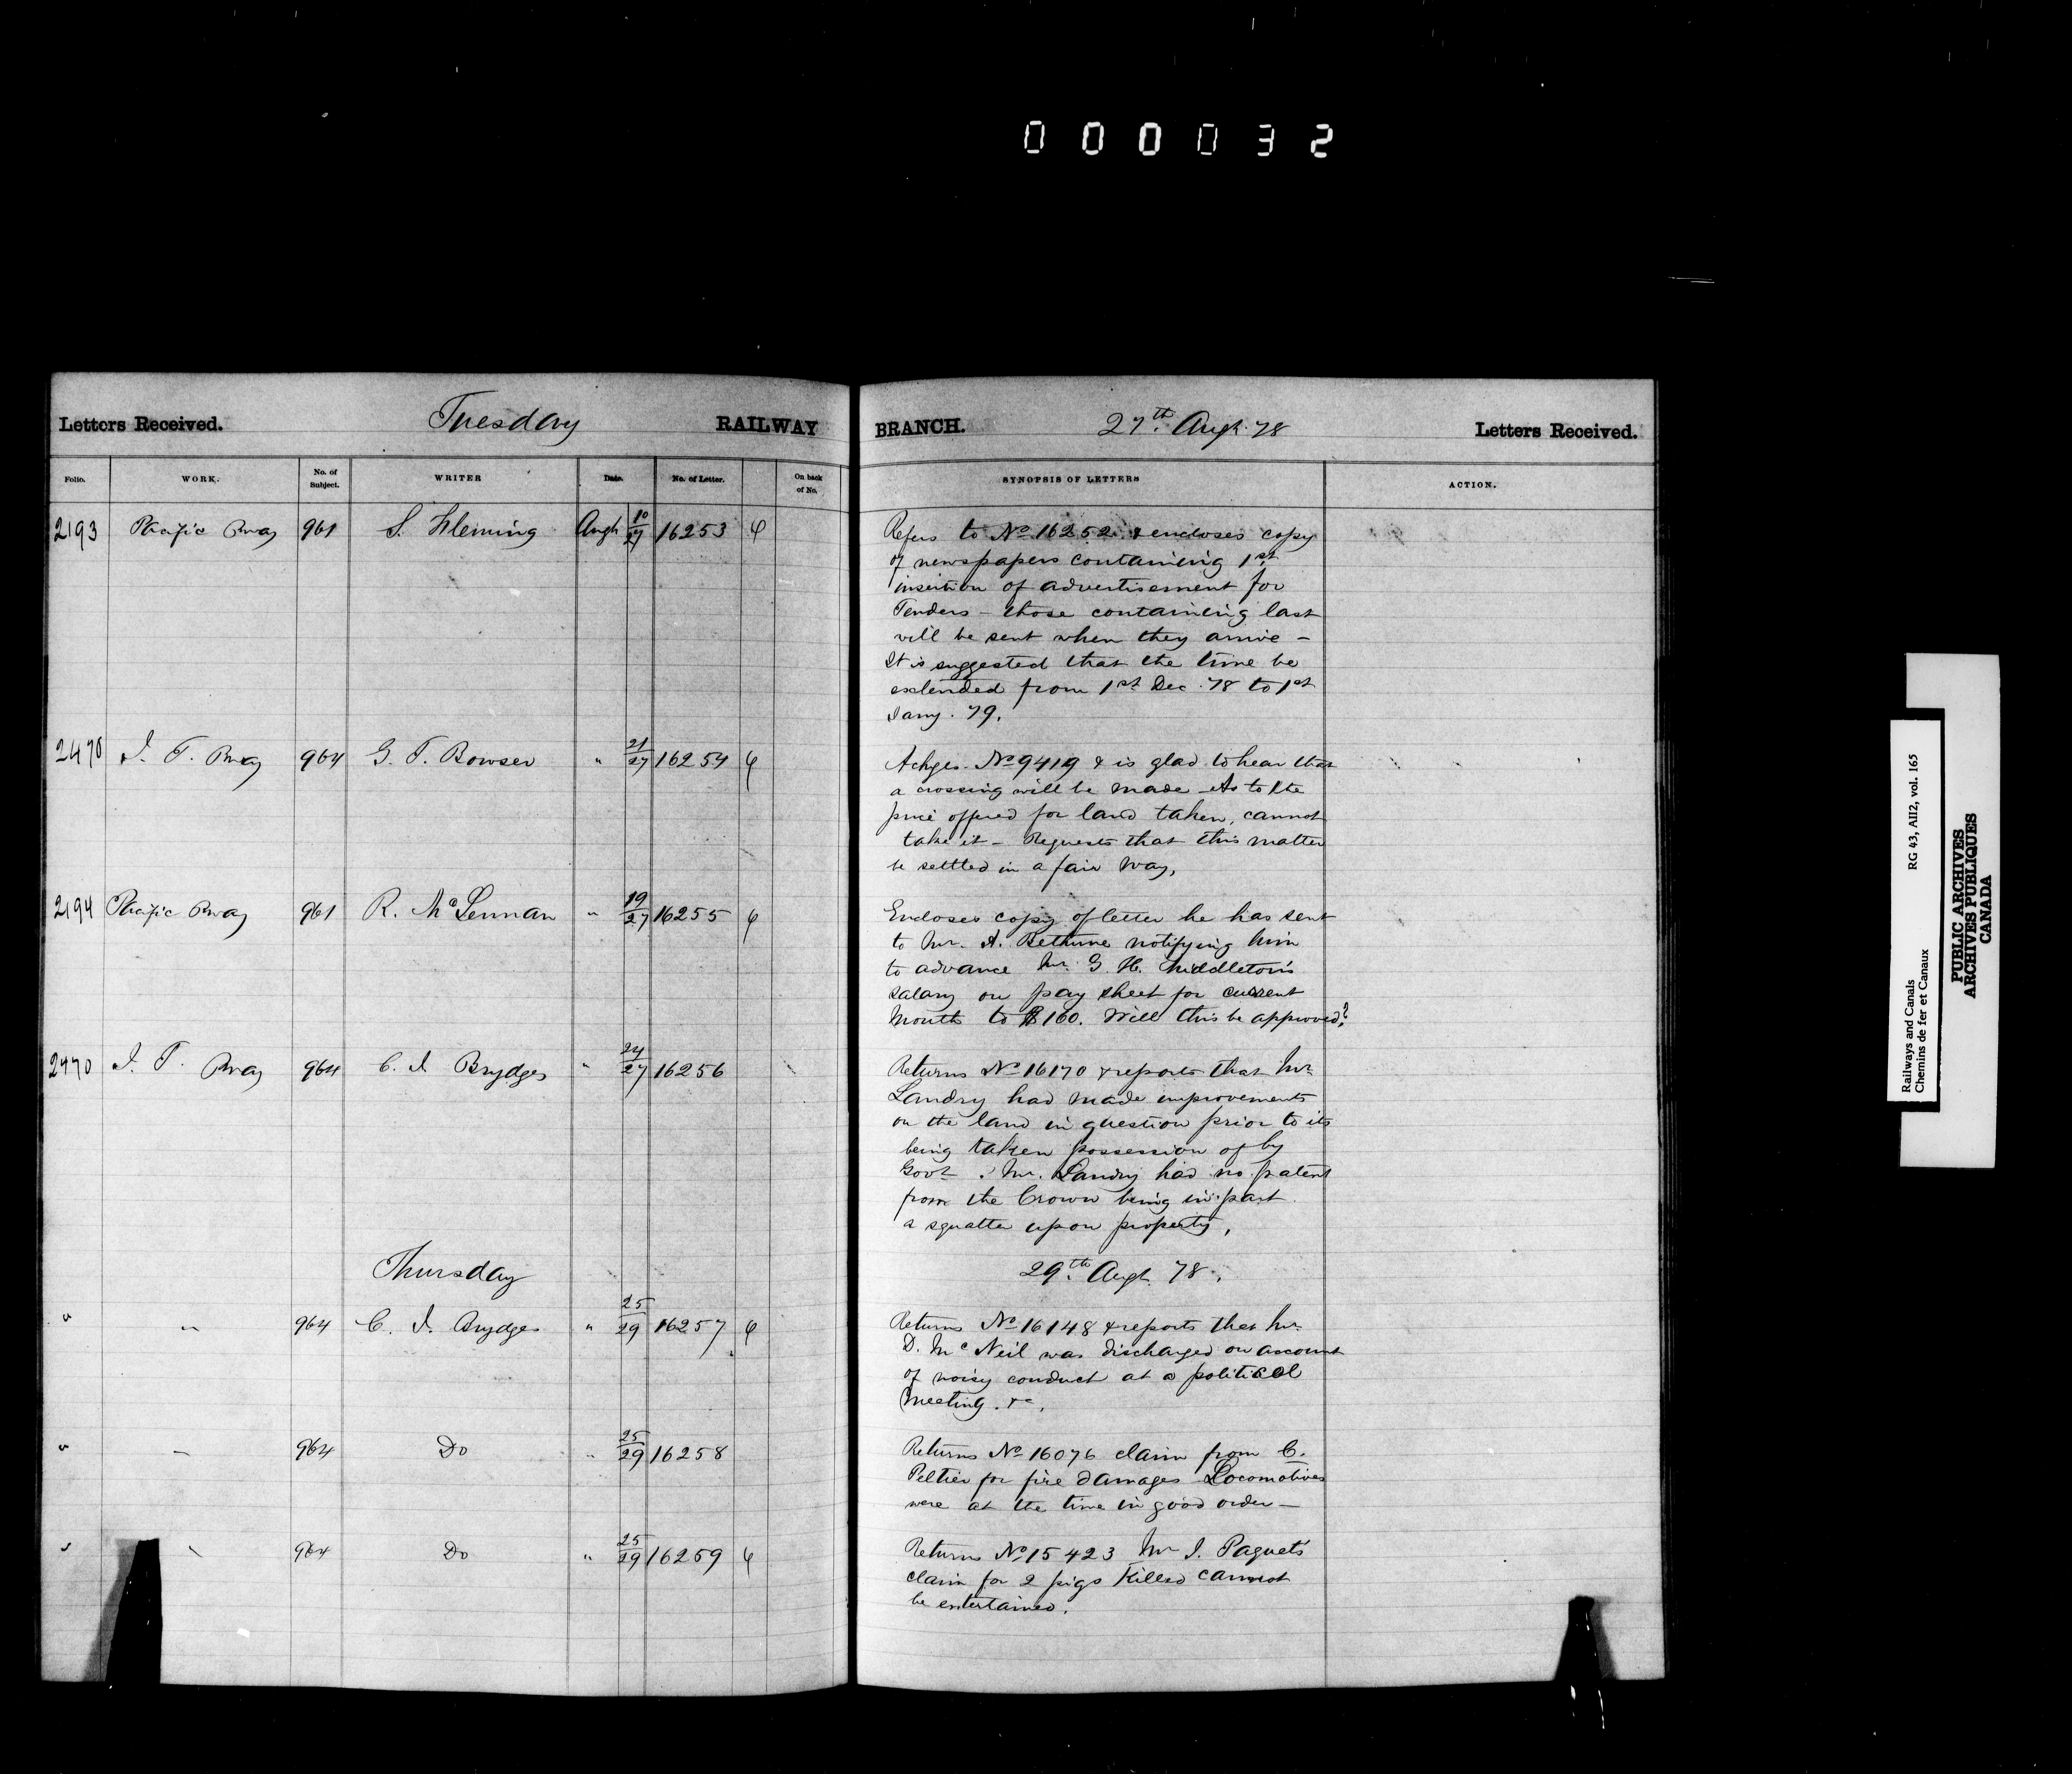 000032
Letters Received. Tuesday RAILWAY BRANCH. 27th. Augt. 78 Letters Received.
Folio. WORK. No. of Subject. WRITER Date. No. of Letter. On back of No. SYNOPSIS OF LETTERS ACTION.
2193 Pacific Rway 961 S. Fleming Augt 10/27 16253
Refers to No 16252 & encloses copy
of newspapers containing 1st
insertion of advertisement for
Tenders - those containing last
will be sent when they arrive -
It is suggested that the time be
extended from 1st Dec. 78 to 1st
Jany. 79.
2470 I. T. Rway 964 G. T. Bowser " 21/27 16254
Ackges. No 9419 & is glad to hear that
a crossing will be made - As to the
price offered for land taken, cannot
take it - Requests that this matter
be settled in a fair way,
2194 Pacific Rway 961 R. McLennan " 19/27 16255
Encloses copy of letter he has sent
to Mr. A. Bethune notifying him
to advance Mr. G. H. Middleton's
salary on pay sheet for current
Month to $160. Will this be approved?
2470 I. T. Rway 964 C. J. Brydges " 24/27 16256
Returns No 16170 & reports that Mr
Landry had made improvements
on the land in question prior to its
being taken possession of by
Govt. Mr. Landry had no patent
from the Crown being in part
a squatter upon property,
Thursday 29th. Augt. 78.
" " 964 C. J. Brydges " 25/29 16257
Returns No 16148 & reports that Mr
D. Mc Neil was discharged on account
of noisy conduct at a political
Meeting. &c,
" " 964 Do " 25/29 16258
Returns No 16076 claim from C.
Peltier for fire damages Locomotives
were at the time in good order -
" " 964 Do " 25/29 16259
Returns No 15423 Mr J. Paquet's
claim for 2 pigs killed cannot
be entertained.
Railways and Canals RG 43, AII2, vol. 165
Chemins de fer et Canaux
PUBLIC ARCHIVES
ARCHIVES PUBLIQUES
CANADA